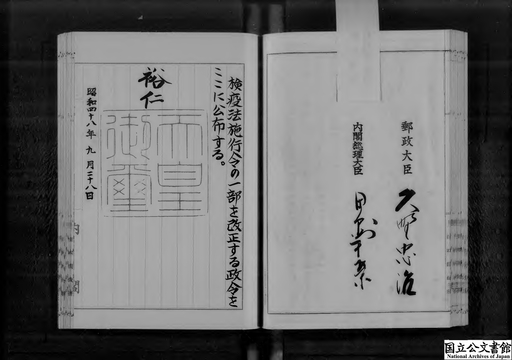 郵政大臣
久野忠治
内閣総理大臣
田中角榮
検疫法施行令の一部を改正する政令を
ここに公布する。
裕仁
天皇
御璽
昭和四十八年九月二十八日
内閣
国立公文書館
National Archives of Japan